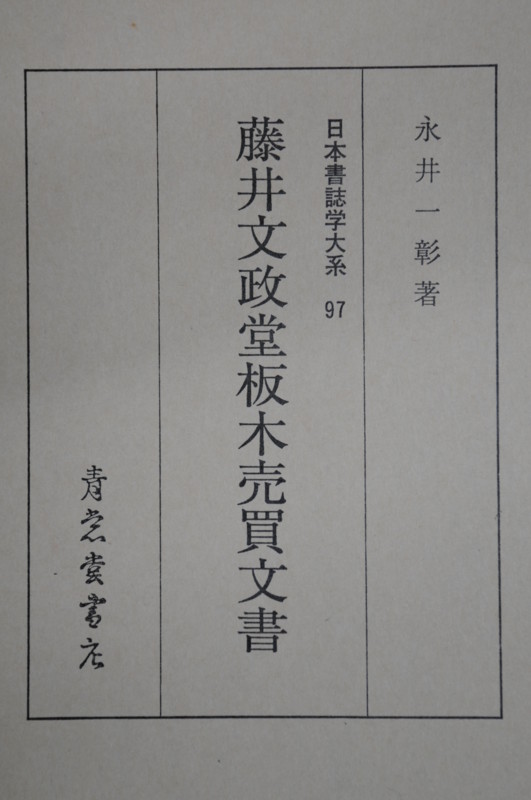 永井一彰著
日本書誌学大系 97
藤井文政堂板木売買文書
青裳堂書店